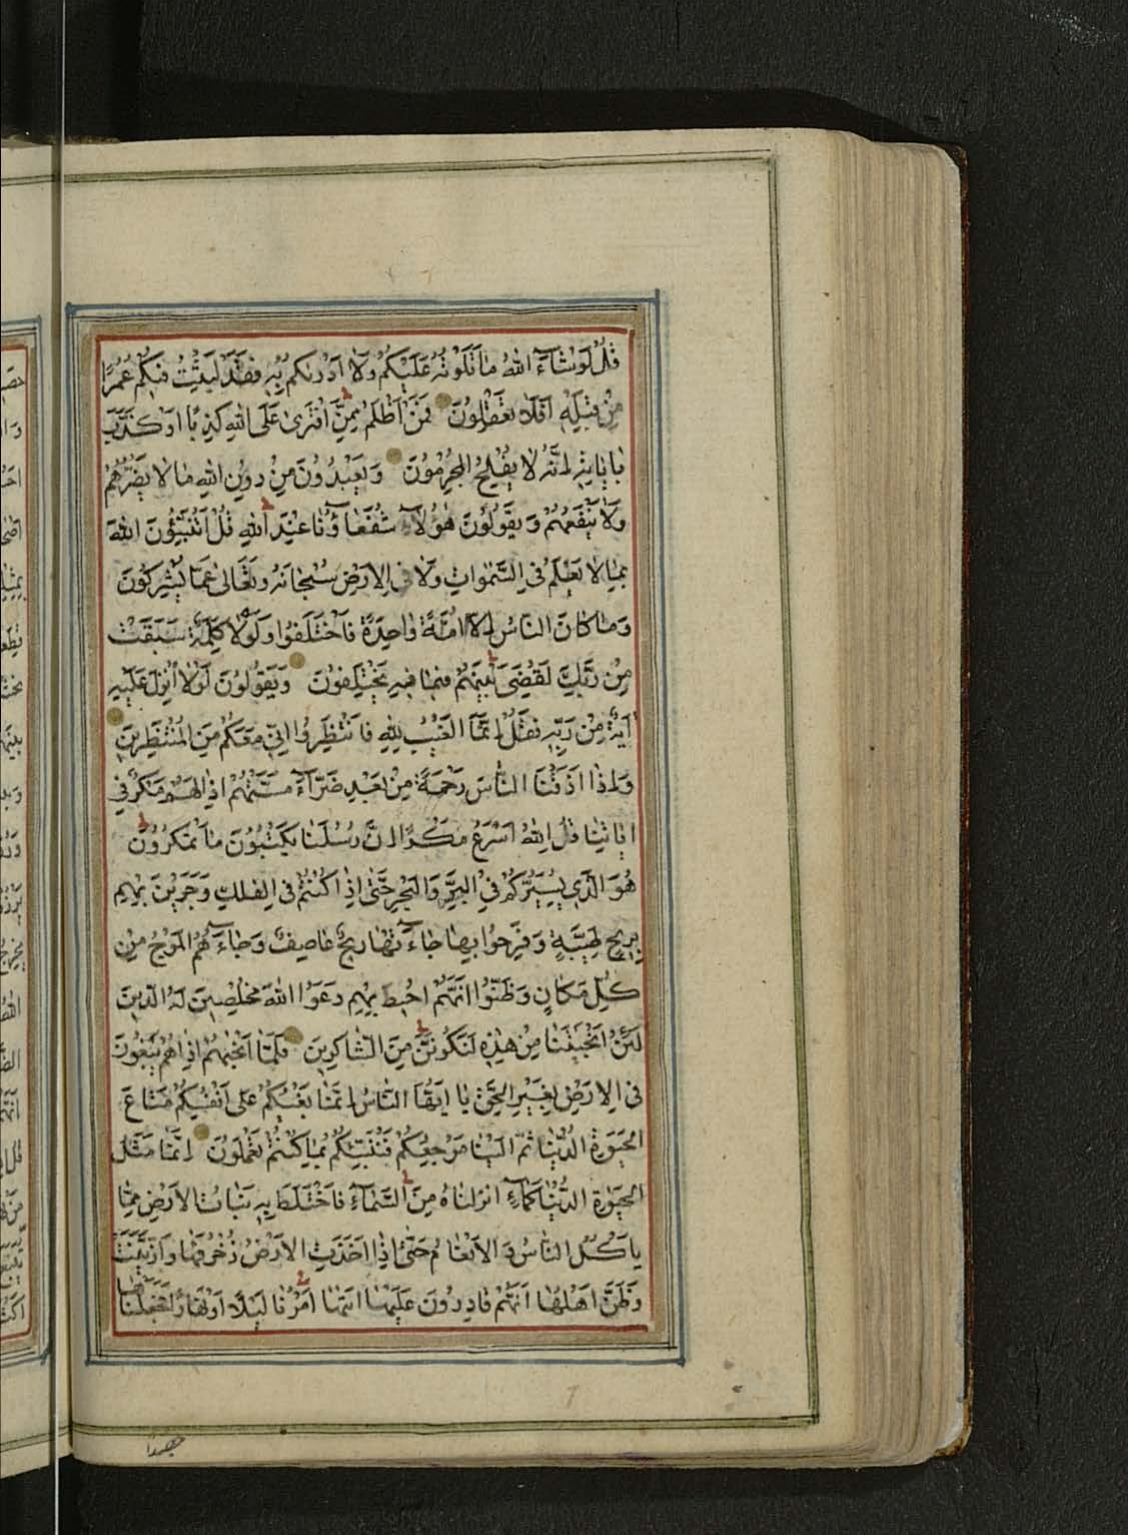 قُلْ لَوْ شَاءَ اللهُ مَا تَلَوْتُهُ عَلَيْكُمْ وَلَا اَدْرٰىكُمْ بِهِ فَقَدْ لَبِثْتُ فِيكُمْ عُمُرًا
مِنْ قَبْلِهِ اَفَلَا تَعْقِلُونَ فَمَنْ اَظْلَمُ مِمَّنِ افْتَرٰى عَلَى اللهِ كَذِبًا اَوْ كَذَّبَ
بِاٰيَاتِهِ اِنَّهُ لَا يُفْلِحُ الْمُجْرِمُونَ وَيَعْبُدُونَ مِنْ دُونِ اللهِ مَا لَا يَضُرُّهُمْ
وَلَا يَنْفَعُهُمْ وَيَقُولُونَ هٰؤُلَاءِ شُفَعَاؤُنَا عِنْدَ اللهِ قُلْ اَتُنَبِّئُونَ اللهَ
بِمَا لَا يَعْلَمُ فِي السَّمٰوَاتِ وَلَا فِي الْاَرْضِ سُبْحَانَهُ وَتَعَالٰى عَمَّا يُشْرِكُونَ
وَمَا كَانَ النَّاسُ اِلَّا اُمَّةً وَاحِدَةً فَاخْتَلَفُوا وَلَوْلَا كَلِمَةٌ سَبَقَتْ
مِنْ رَبِّكَ لَقُضِيَ بَيْنَهُمْ فِيمَا فِيهِ يَخْتَلِفُونَ وَيَقُولُونَ لَوْلَا اُنْزِلَ عَلَيْهِ
اٰيَةٌ مِنْ رَبِّهِ فَقُلْ اِنَّمَا الْغَيْبُ لِلّٰهِ فَانْتَظِرُوا اِنِّي مَعَكُمْ مِنَ الْمُنْتَظِرِينَ
وَاِذَا اَذَقْنَا النَّاسَ رَحْمَةً مِنْ بَعْدِ ضَرَّاءَ مَسَّتْهُمْ اِذَا لَهُمْ مَكْرٌ فِي
اٰيَاتِنَا قُلِ اللهُ اَسْرَعُ مَكْرًا اِنَّ رُسُلَنَا يَكْتُبُونَ مَا تَمْكُرُونَ
هُوَ الَّذِي يُسَيِّرُكُمْ فِي الْبَرِّ وَالْبَحْرِ حَتّٰى اِذَا كُنْتُمْ فِي الْفُلْكِ وَجَرَيْنَ بِهِمْ
بِرِيحٍ طَيِّبَةٍ وَفَرِحُوا بِهَا جَاءَتْهَا رِيحٌ عَاصِفٌ وَجَاءَهُمُ الْمَوْجُ مِنْ
كُلِّ مَكَانٍ وَظَنُّوا اَنَّهُمْ اُحِيطَ بِهِمْ دَعَوُا اللهَ مُخْلِصِينَ لَهُ الدِّينَ
لَئِنْ اَنْجَيْتَنَا مِنْ هٰذِهِ لَنَكُونَنَّ مِنَ الشَّاكِرِينَ فَلَمَّا اَنْجٰيهُمْ اِذَا هُمْ يَبْغُونَ
فِي الْاَرْضِ بِغَيْرِ الْحَقِّ يَا اَيُّهَا النَّاسُ اِنَّمَا بَغْيُكُمْ عَلٰى اَنْفُسِكُمْ مَتَاعَ
الْحَيٰوةِ الدُّنْيَا ثُمَّ اِلَيْنَا مَرْجِعُكُمْ فَنُنَبِّئُكُمْ بِمَا كُنْتُمْ تَعْمَلُونَ اِنَّمَا مَثَلُ
الْحَيٰوةِ الدُّنْيَا كَمَاءٍ اَنْزَلْنَاهُ مِنَ السَّمَاءِ فَاخْتَلَطَ بِهِ نَبَاتُ الْاَرْضِ مِمَّا
يَاْكُلُ النَّاسُ وَالْاَنْعَامُ حَتّٰى اِذَا اَخَذَتِ الْاَرْضُ زُخْرُفَهَا وَازَّيَّنَتْ
وَظَنَّ اَهْلُهَا اَنَّهُمْ قَادِرُونَ عَلَيْهَا اَتٰيهَا اَمْرُنَا لَيْلًا اَوْ نَهَارًا فَجَعَلْنَاهَا
حصيدا